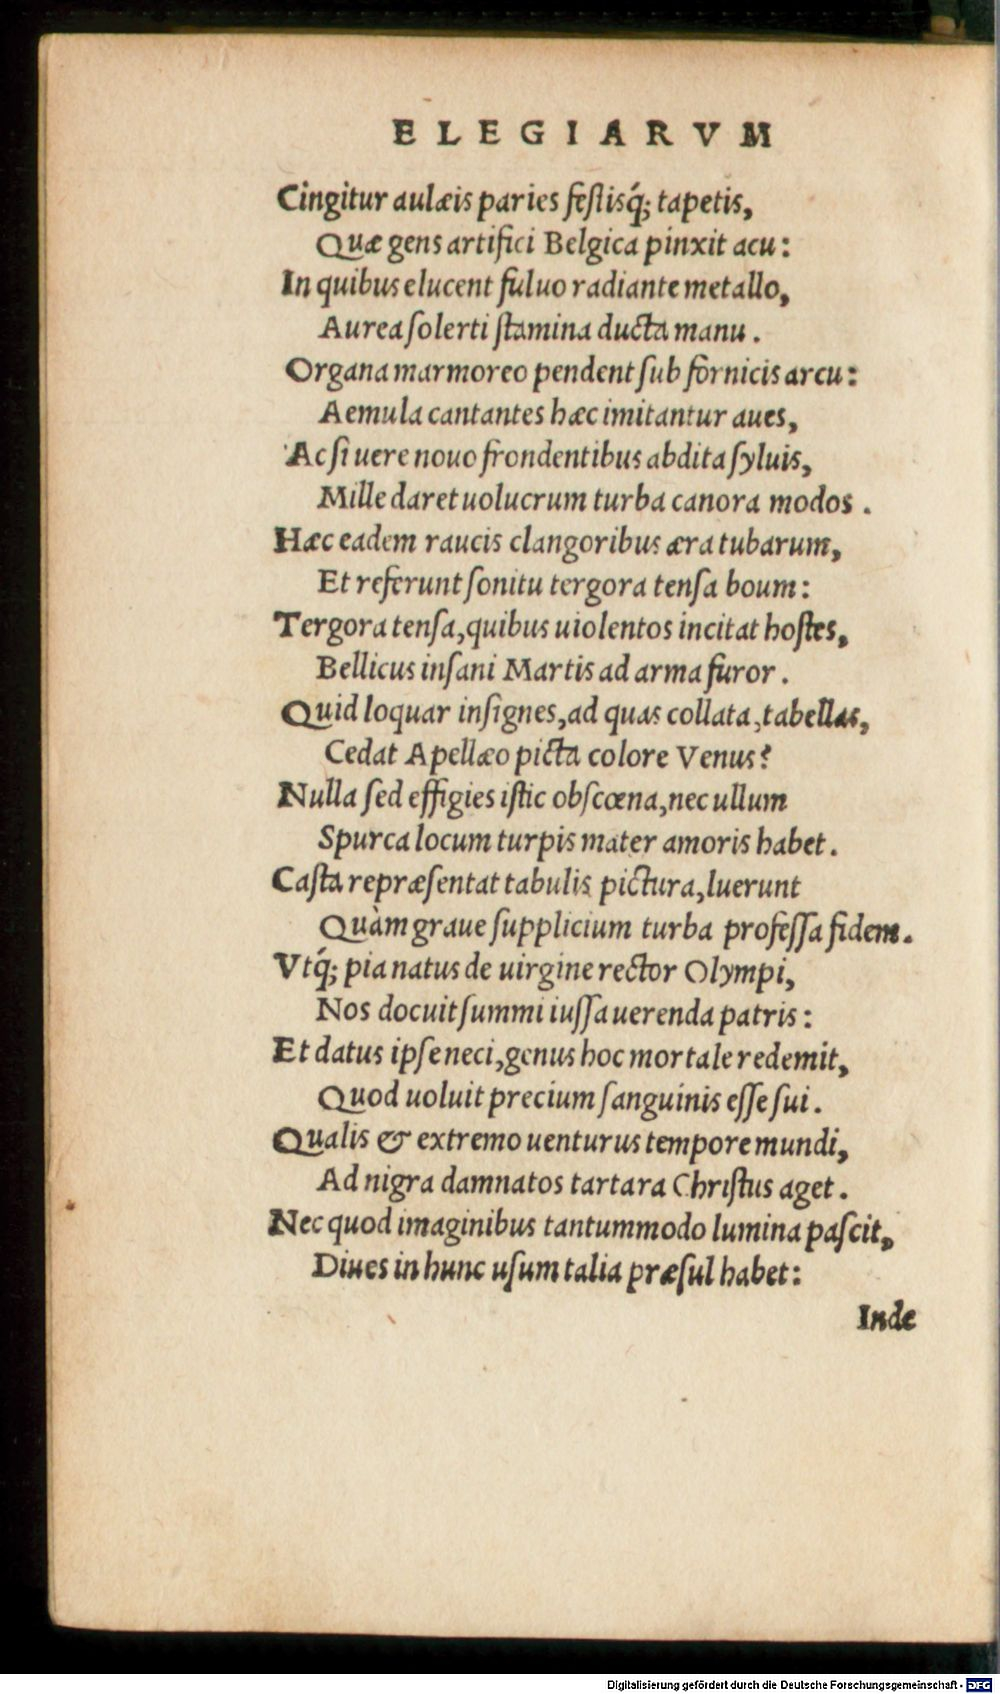 ELEGIARVM
Cingitur aulæis paries festisq́; tapetis,
Quæ gens artifici Belgica pinxit acu:
In quibus elucent fuluo radiante metallo,
Aurea solerti stamina ducta manu.
Organa marmoreo pendent sub fornicis arcu:
Aemula cantantes hæc imitantur aues,
Ac si uere nouo frondentibus abdita syluis,
Mille daret uolucrum turba canora modos.
Hæc eadem raucis clangoribus æra tubarum,
Et referunt sonitu tergora tensa boum:
Tergora tensa, quibus uiolentos incitat hostes,
Bellicus insani Martis ad arma furor.
Quid loquar insignes, ad quas collata, tabellas,
Cedat Apellæo picta colore Venus?
Nulla sed effigies istic obscœna, nec ullum
Spurca locum turpis mater amoris habet.
Casta repræsentat tabulis pictura, luerunt
Quàm graue supplicium turba professa fidem.
Vtq́; pia natus de uirgine rector Olympi,
Nos docuit summi iussa uerenda patris:
Et datus ipse neci, genus hoc mortale redemit,
Quod uoluit precium sanguinis esse sui.
Qualis & extremo uenturus tempore mundi,
Ad nigra damnatos tartara Christus aget.
Nec quod imaginibus tantummodo lumina pascit,
Diues in hunc usum talia præsul habet:
Inde
Digitalisierung gefördert durch die Deutsche Forschungsgemeinschaft - DFG